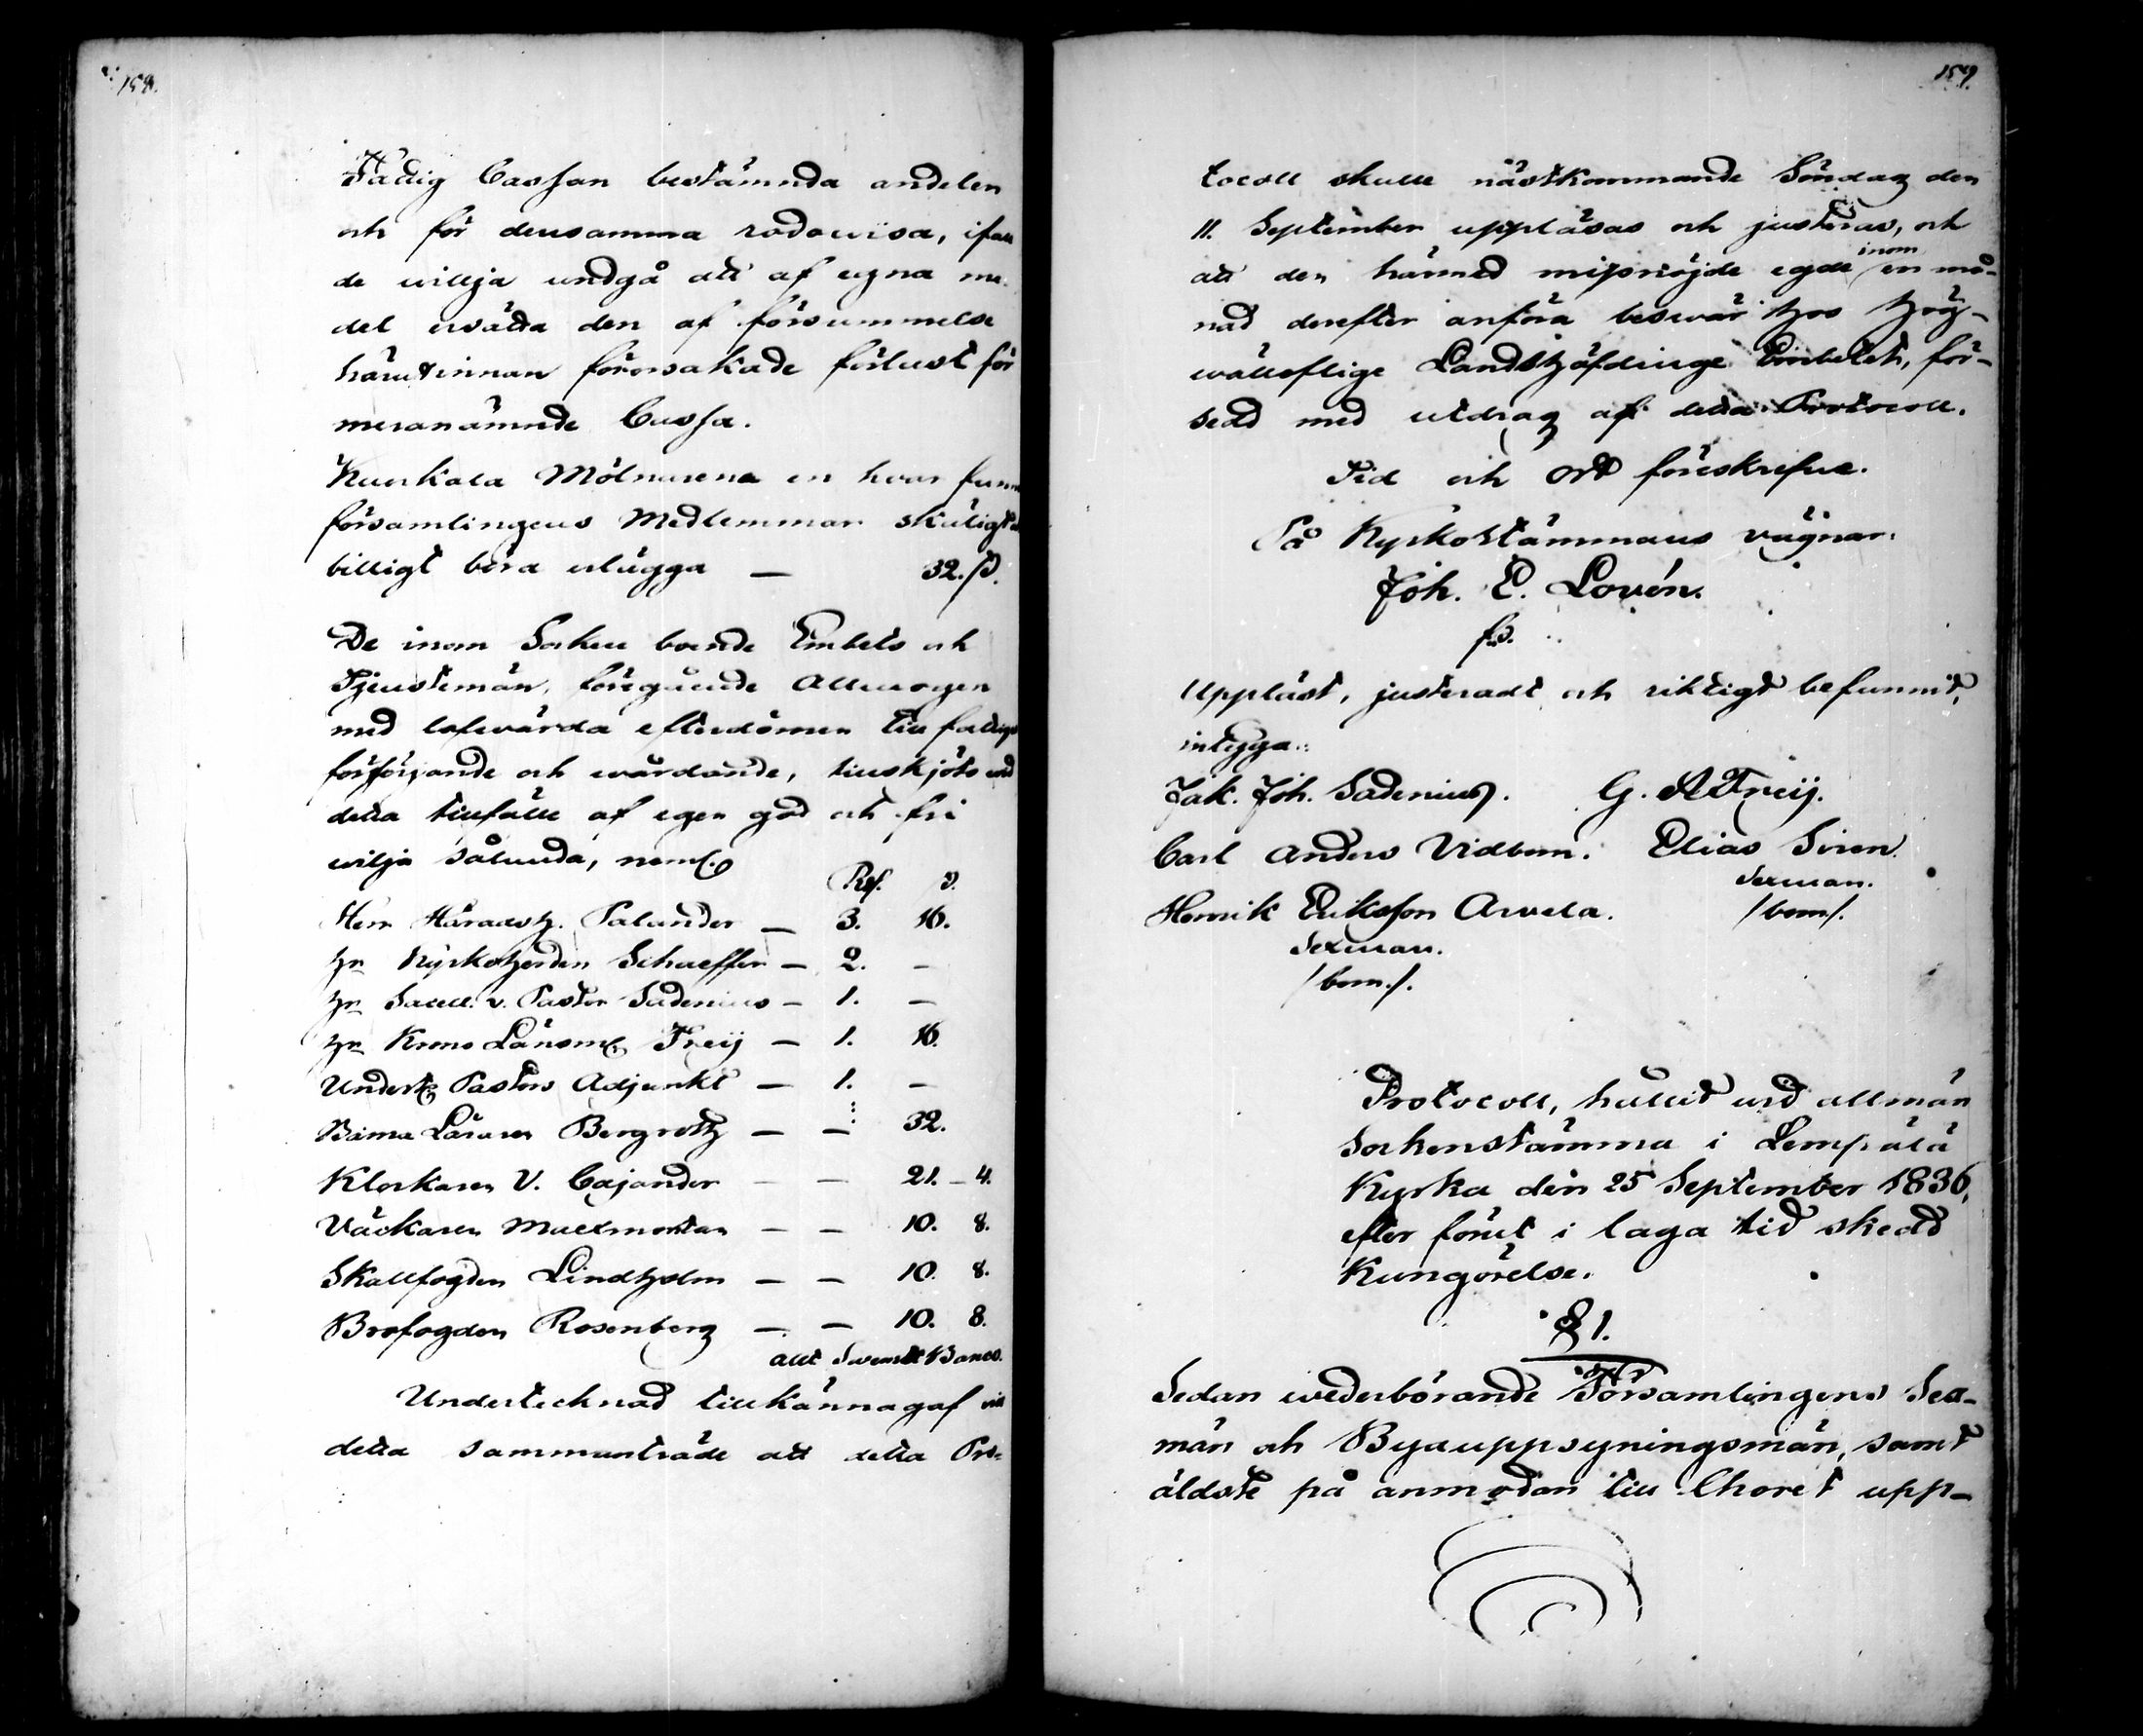 158.
Fattig Cassan bestämnda andelen
och för densamma redowisa, ifall
de willja undgå att af egna me-
del ersätta den af försummelse
härutinnan förorsakade förlust för
meranämnde Cassa.
Kuokala Mölnarena en hvar funno
församlingens Medlemmar skäligt o
billigt böra erlägga — 32. s.
De inom Socken boende Embets och
Tjenstemän, föregående Allmogen
med lofvärda efterdömen till fattigas
försörjande och wårdande, tillskjöto wid
detta tillfälle af egen god och fri
wilja sålunda, neml.
Rs. s.
Herr Häradsh. Palander — 3. 16.
Hr Kyrkoherden Schaeffer — 2. —
Hr Sacell. v. Pastor Sadenius — 1. —
Hr Krono Länsm. Freij — 1. 16.
Undert. Pastors Adjunkt — 1. —
Barna Läraren Bergroth — — 32.
Klockaren V. Cajander — — 21. — 4.
Väckaren Mattmortan — — 10. 8.
Skallfogden Lindholm — — 10. 8.
Brofogden Rosenberg — — 10. 8.
allt Svenskt Banco.
Undertecknad tillkännagaf vid
detta sammanträde att detta Pro-
159.
tocoll skulle nästkommande Söndag den
11. September uppläsas och justeras, och
att den härmed missnöjde egde inom en må-
nad derefter anföra beswär hos Hög-
wälloflige Landshöfdinge Embetet, för-
sedd med utdrag af detta Protocoll.
Tid och Ort föreskrefne.
På Kyrkostämmans vägnar.
Joh. E. Lovén.
Uppläst, justeradt och riktigt befunnit,
intyga:
Jak. Joh. Sadenius. G. A Freij.
Carl Anders Vidbom. Elias Siren.
Sexman.
/bom/.
Henrik Eriksson Arvela.
Sexman.
/bom./.
Protocoll, hållit wid allmän
Sockenstämma i Lempälä
Kyrka den 25 September 1836,
efter förut i laga tid skedd
Kungörelse.
§ 1.
Sedan wederbörande Församlingens Sex-
män och Byauppsyningsmän, samt
äldste på anmodan till Choret upp-